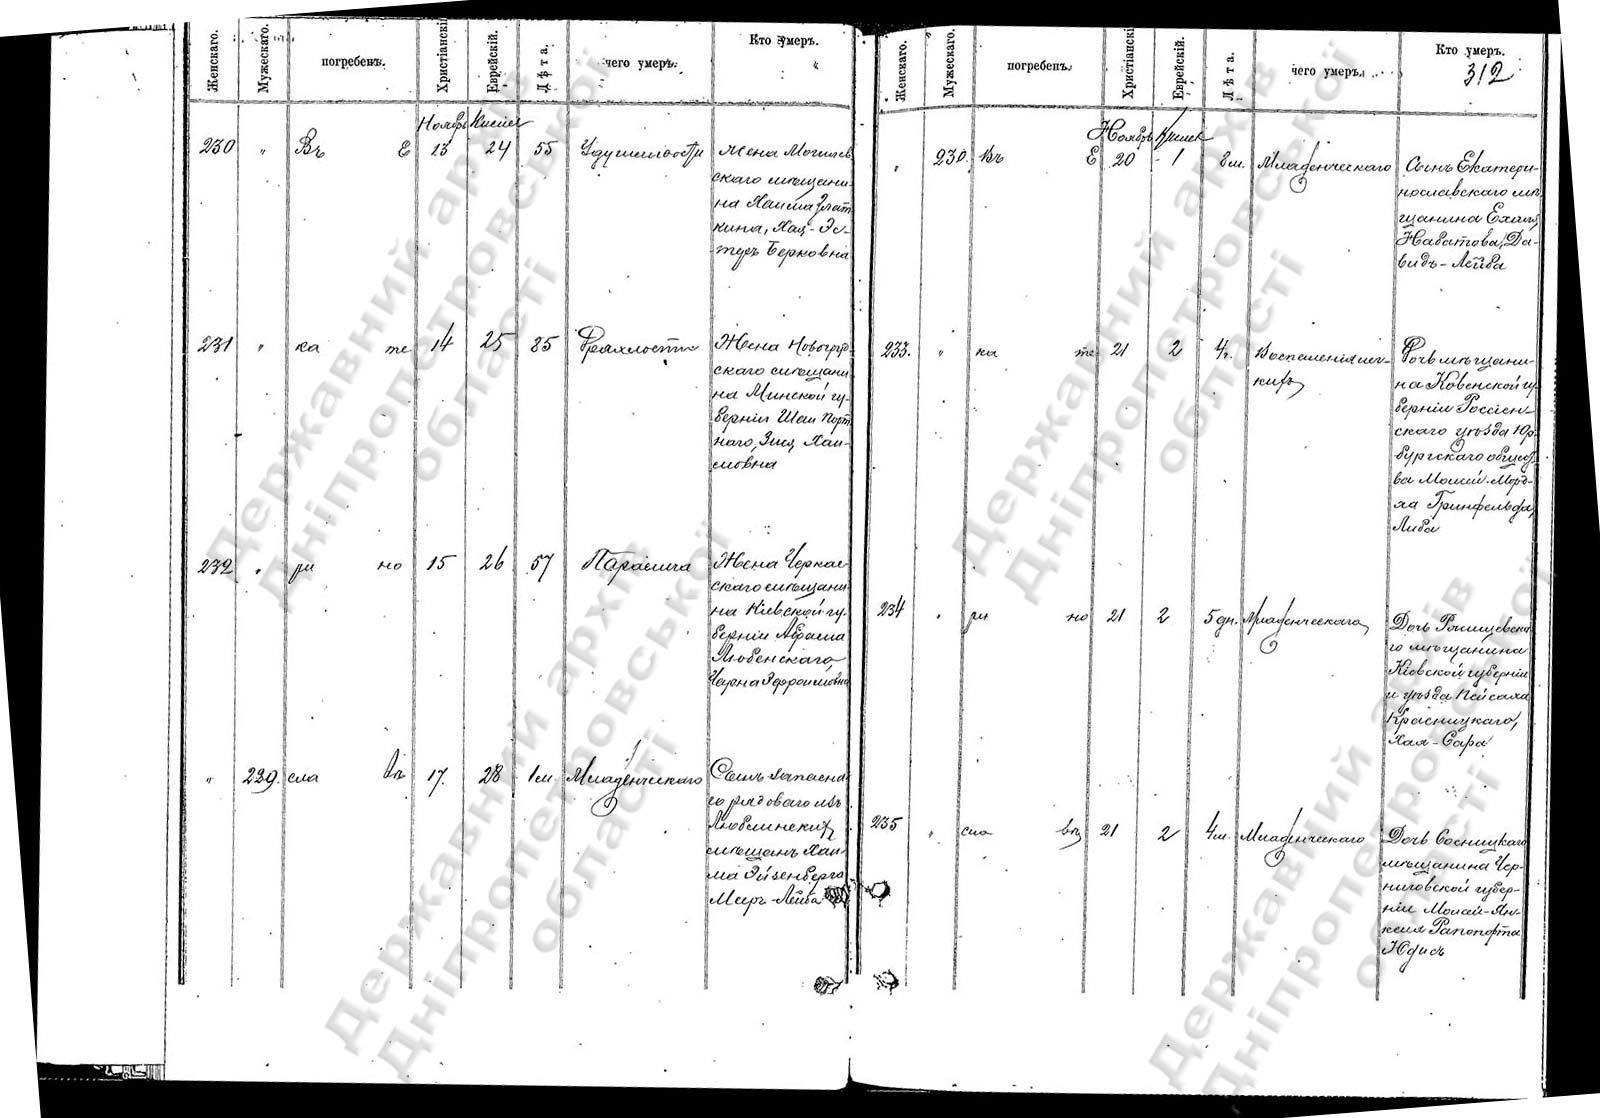 Женскаго.
Мужескаго.
погребенъ.
Христіанскій
Еврейскій.
Лѣта.
чего умеръ.
Кто умеръ.
Ноябрь Кислев
230 „ Въ Е 13 24 55
Жена Могилев
скаго мѣщани
на Хаима Злат
кина, Хая-Эс-
тиръ Берковна
231 „ ка те 14 25 85 Дряхлости
Жена Новогруд
скаго мѣщани
на Минской гу-
берніи Шаи Порт
наго, Зися Хаи-
мовна
232 „ ри но 15 26 57 Паралича
Жена Черкас
скаго мѣщани
на Кіевской гу-
берніи Абрама
Любенскаго
Черна Эфроимовна
„ 229. сла въ 17. 28 1 м Младенческаго
Сынъ запасна
го рядоваго изъ
Люблинскихъ
мѣщанъ Хаи-
ма Эйзенберга
Меер-Лейба
Женскаго.
Мужескаго.
погребенъ.
Христіанскій
Еврейскій.
Лѣта.
чего умеръ.
Кто умеръ.
312
Ноябрь Кислев
„ 230. Въ Е 20 1 8 м. Младенческаго
Сынъ Екатери-
нославскаго мѣ
щанина Ехиля
Набатова, Да-
видъ-Лейба
233. „ ка те 21 2 4 г. Воспаленія лег-
кихъ
Дочь мѣщани-
на Ковенской гу
берніи Россіен-
скаго уѣзда Юр-
бургскаго общест
ва Мовши-Морд-
ха Гринфельда,
Либа
234 „ ри но 21 2 5 дн. Младенческаго
Дочь Ржищевска
го мѣщанина
Кіевской губерніи
и уѣзда Пейсаха
Красницкаго,
Хая-Сара
235 „ сла въ 21 2 4 м. Младенческаго
Дочь Сосницкаго
мѣщанина Чер-
ниговской губер-
ніи Мовши-Ян-
келя Рапопорта
Юдись
Державний архів
Дніпропетровської
області
Державний архів
Дніпропетровської
області
Державний архів
Дніпропетровської
області
Державний архів
Дніпропетровської
області